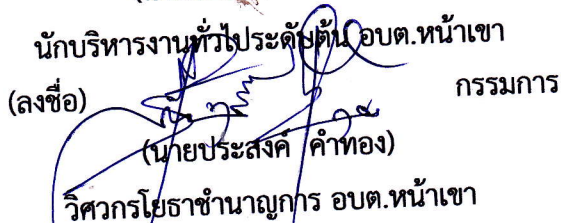 นักบริหารงานทั่วไประดับต้น อบต.หน้าเขา
(ลงชื่อ) กรรมการ
(นายประสงค์ คำทอง)
วิศวกรโยธาชำนาญการ อบต.หน้าเขา